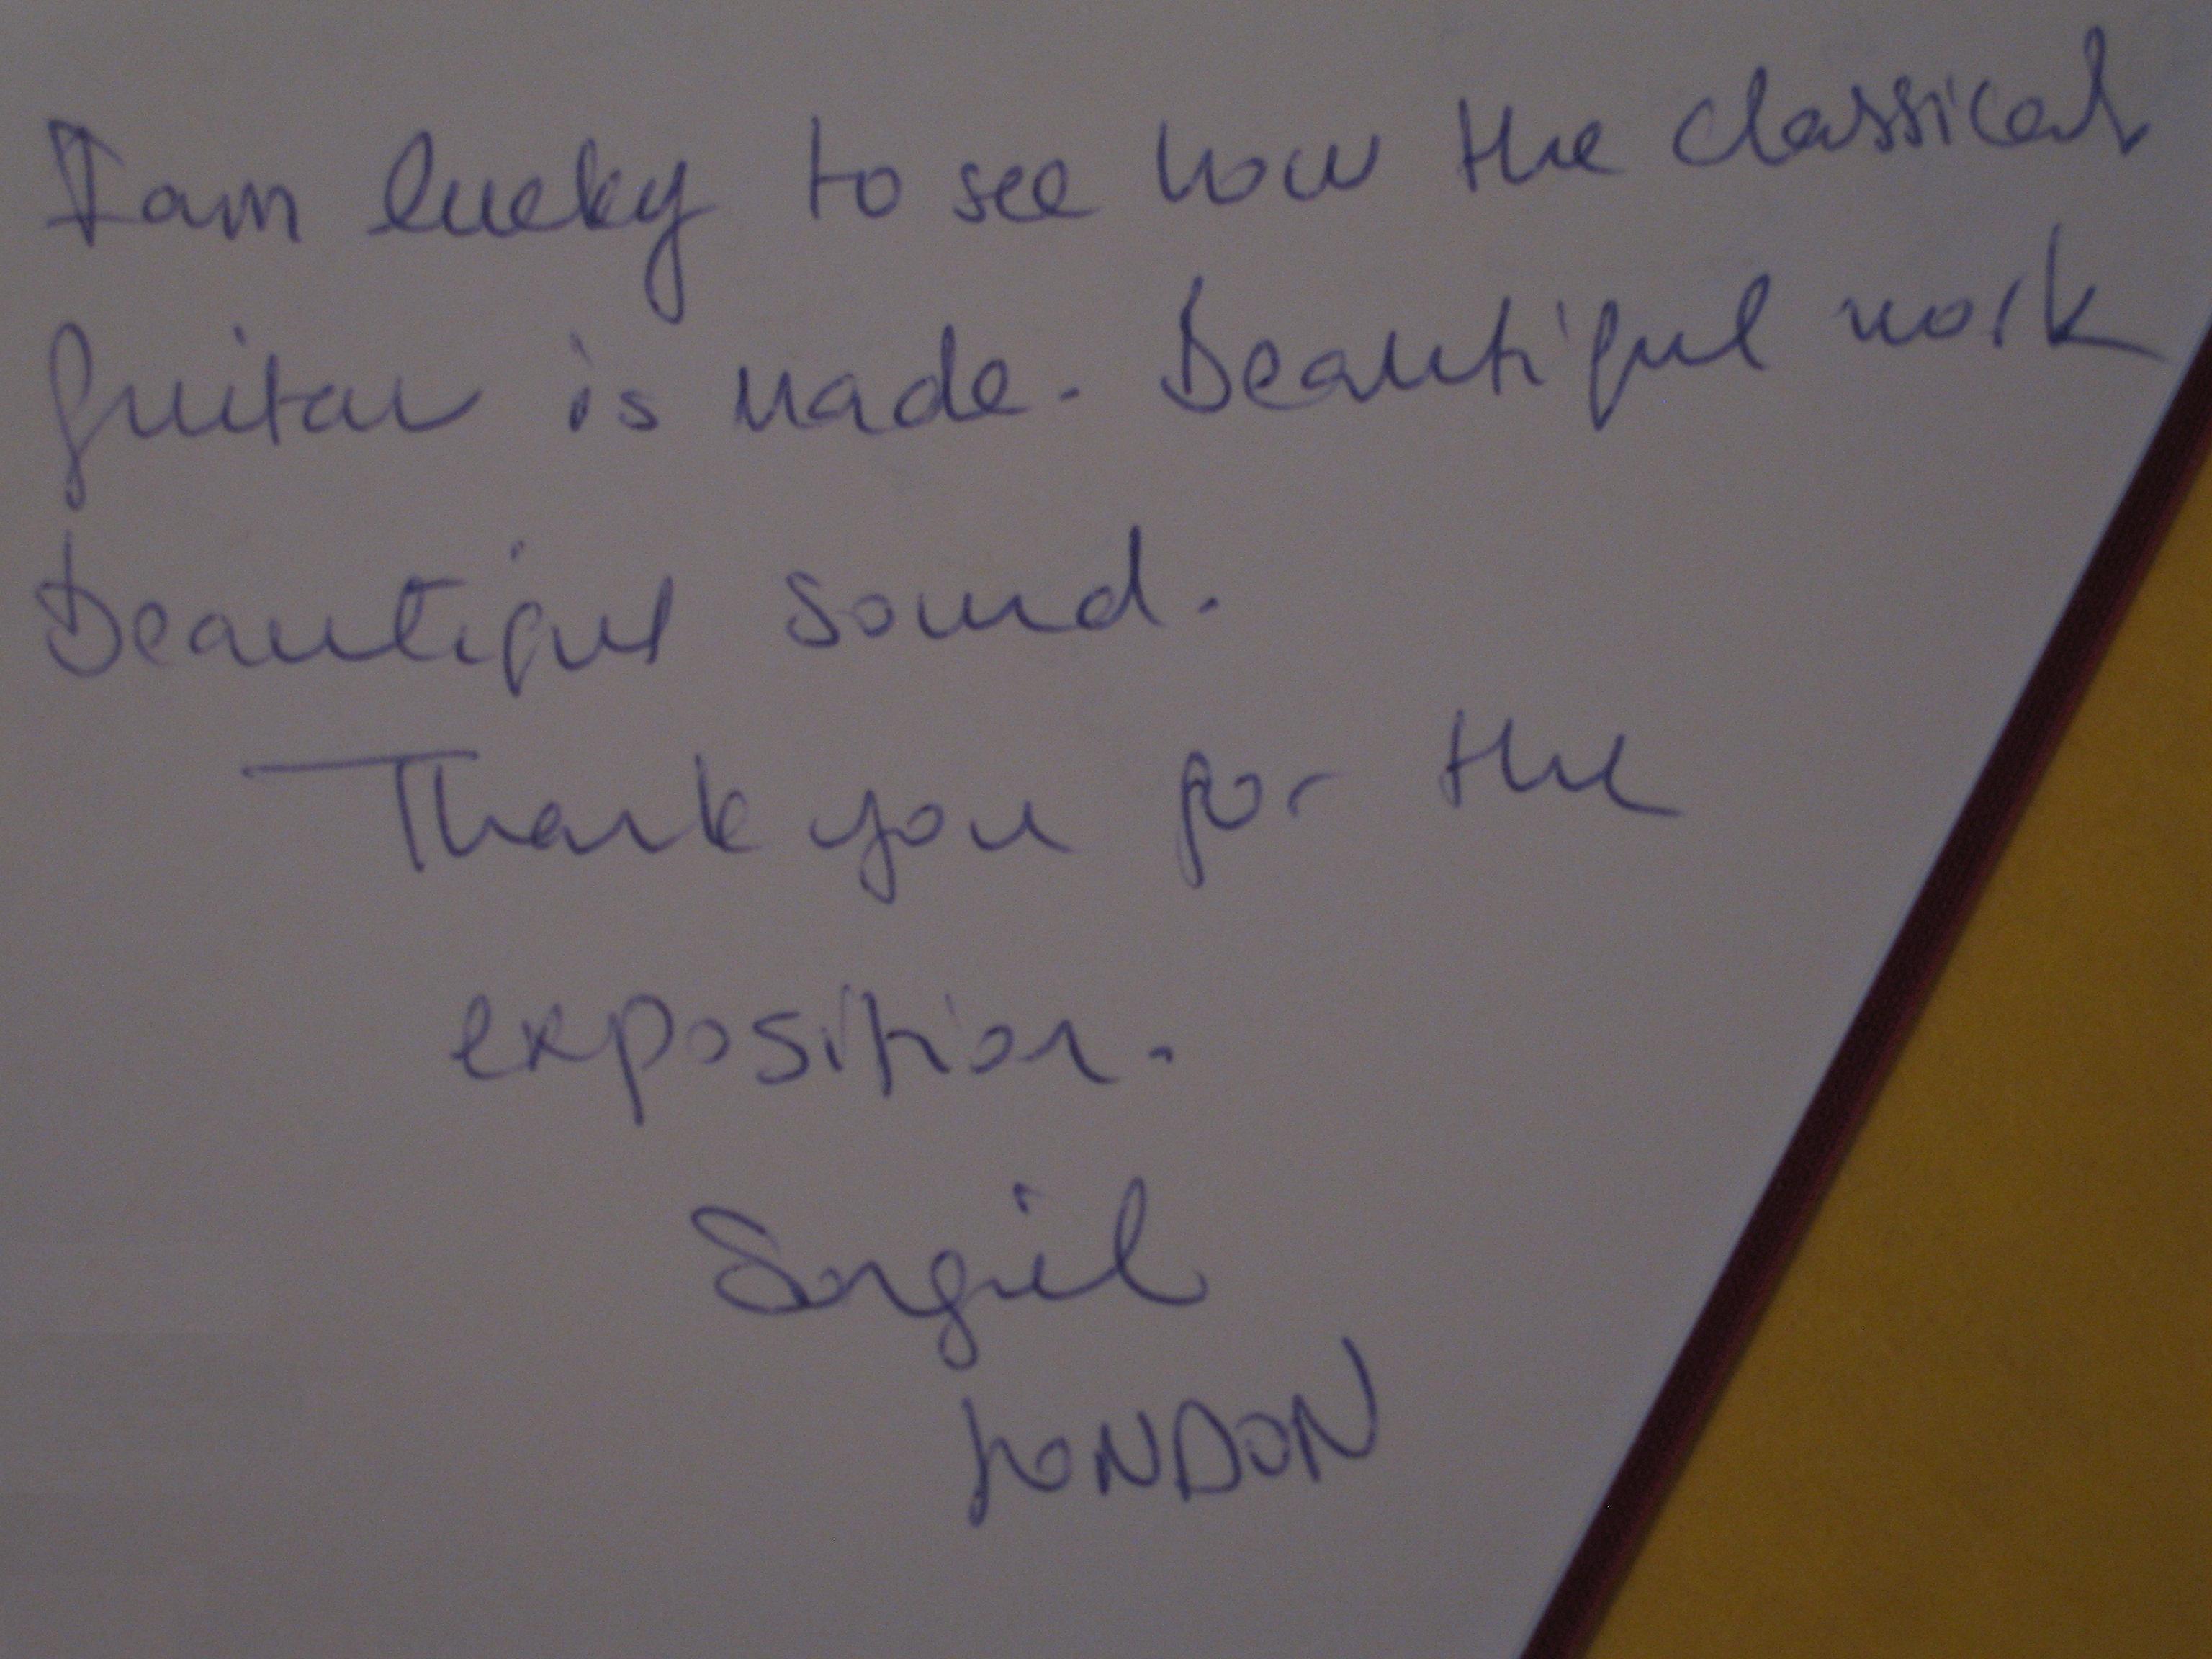 I am lucky to see how the classical
guitar is made. Beautiful work
Beautiful sound.
Thank you for the
exposition.
LONDON